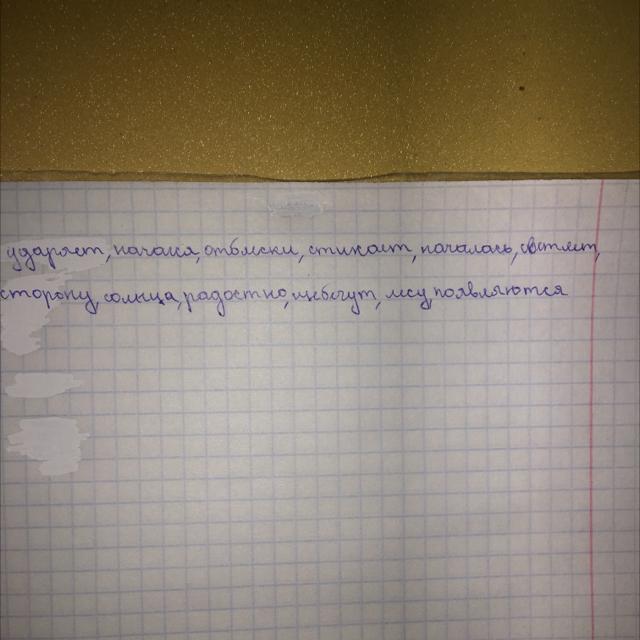 ударяет, начался, отблески, стихает, началась, светлеет,
сторону, солнца, радостно, щебечут, лесу, появляются